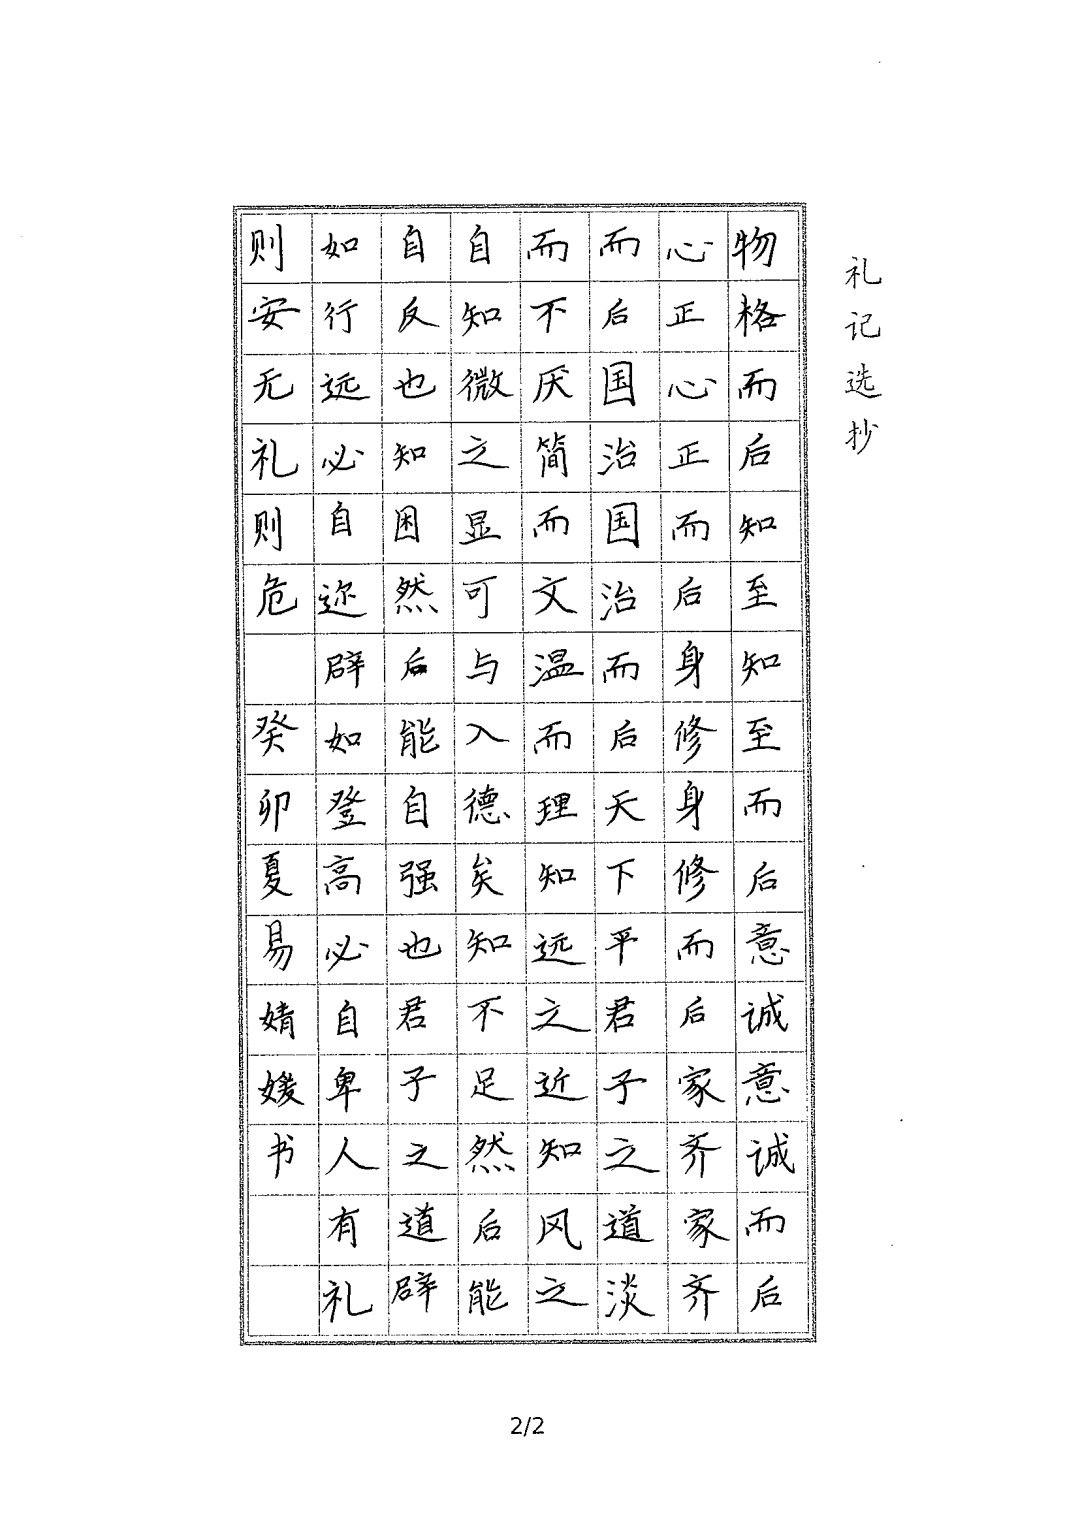 礼记选抄
物格而后知至知至而后意诚意诚而后
心正心正而后身修身修而后家齐家齐
而后国治国治而后天下平君子之道淡
而不厌简而文温而理知远之近知风之
自知微之显可与入德矣知不足然后能
自反也知困然后能自强也君子之道辟
如行远必自迩辟如登高必自卑人有礼
则安无礼则危 癸卯夏易婧媛书
2/2